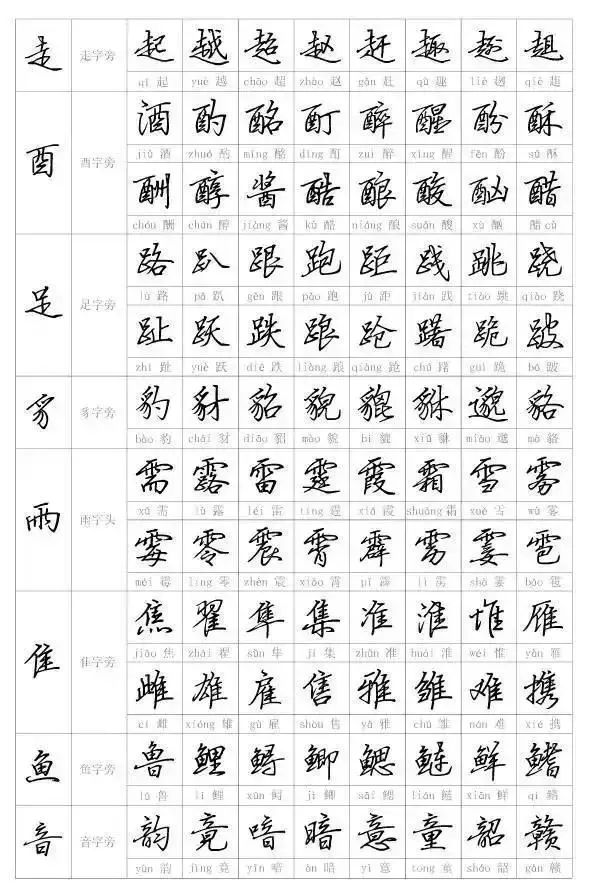 走 走字旁 起 越 超 赵 赶 趣 趔 趄
qǐ 起 yuè 越 chāo 超 zhào 赵 gǎn 赶 qù 趣 liè 趔 qiè 趄
酒 酌 酩 酊 醉 醒 酚 酥
酉 酉字旁
jiǔ 酒 zhuó 酌 mǐng 酩 dǐng 酊 zuì 醉 xǐng 醒 fēn 酚 sū 酥
酬 醇 酱 酷 酿 酸 酗 醋
chóu 酬 chún 醇 jiàng 酱 kù 酷 niàng 酿 suān 酸 xù 酗 醋 cù
路 趴 跟 跑 距 践 跳 跷
足 足字旁
lù 路 pā 趴 gēn 跟 pǎo 跑 jù 距 jiàn 践 tiào 跳 qiāo 跷
趾 跃 跌 踉 跄 躇 跪 跛
zhǐ 趾 yuè 跃 diē 跌 liàng 踉 qiàng 跄 chú 躇 guì 跪 bǒ 跛
豸 豸字旁 豹 豺 貂 貌 貔 貅 邈 貉
bào 豹 chái 豺 diāo 貂 mào 貌 pí 貔 xiū 貅 miǎo 邈 貉
需 露 雷 霆 霞 霜 雪 雾
雨 雨字头
xū 需 lù 露 léi 雷 tíng 霆 xiá 霞 shuāng 霜 xuě 雪 wù 雾
霉 零 震 霄 霹 雳 霎 雹
méi 霉 líng 零 zhèn 震 xiāo 霄 pī 霹 lì 雳 shà 霎 báo 雹
焦 翟 隼 集 准 淮 惟 雁
隹 隹字旁
jiāo 焦 zhái 翟 sǔn 隼 jí 集 zhǔn 准 huái 淮 wéi 惟 yàn 雁
雌 雄 雇 售 雅 雏 难 携
cí 雌 xióng 雄 gù 雇 shòu 售 yǎ 雅 chú 雏 nán 难 xié 携
鱼 鱼字旁 鲁 鲤 鲟 鲫 鳃 鲢 鲜 鳍
lǔ 鲁 lǐ 鲤 xún 鲟 jì 鲫 sāi 鳃 lián 鲢 xiān 鲜 qí 鳍
音 音字旁 韵 竟 喑 暗 意 童 韶 赣
yùn 韵 jìng 竟 yīn 喑 àn 暗 yì 意 tóng 童 sháo 韶 gàn 赣